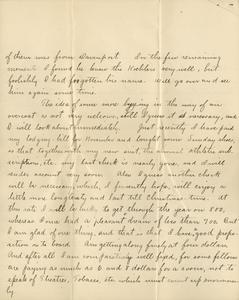 of them was from Davenport. In the few remaining
moments I found he knew the Koehlers very well, but
foolishly I had forgotten his name. Will go over and see
him again some time.
The idea of some more begging in the way of an
overcoat is not very welcome, still I guess it is necessary, and
I will look about immediately. Just recently I have paid
my lodging bill of November and bought some Sunday shoes,
so that together with my new suit, the annual athletic sub-
scription, etc. my last check is nearly gone, and I will
render account very soon. Also I guess another check
will be necessary, which, I fervently hope, will enjoy a
little more longevity and last till Christmas time. At
this rate I will be lucky to get through the year on 800,
whereas I once had a pleasant dream of less than 700. But
I am glad of one thing, and that is that I have good prepa-
ration as to board. Am getting along finely at four dollars
And after all I am comparatively well fixed, for some fellows
are paying as much as 6 and 8 dollars for a room, not to
speak of theatres, tobacco, etc. which must count up enormous-
ly.